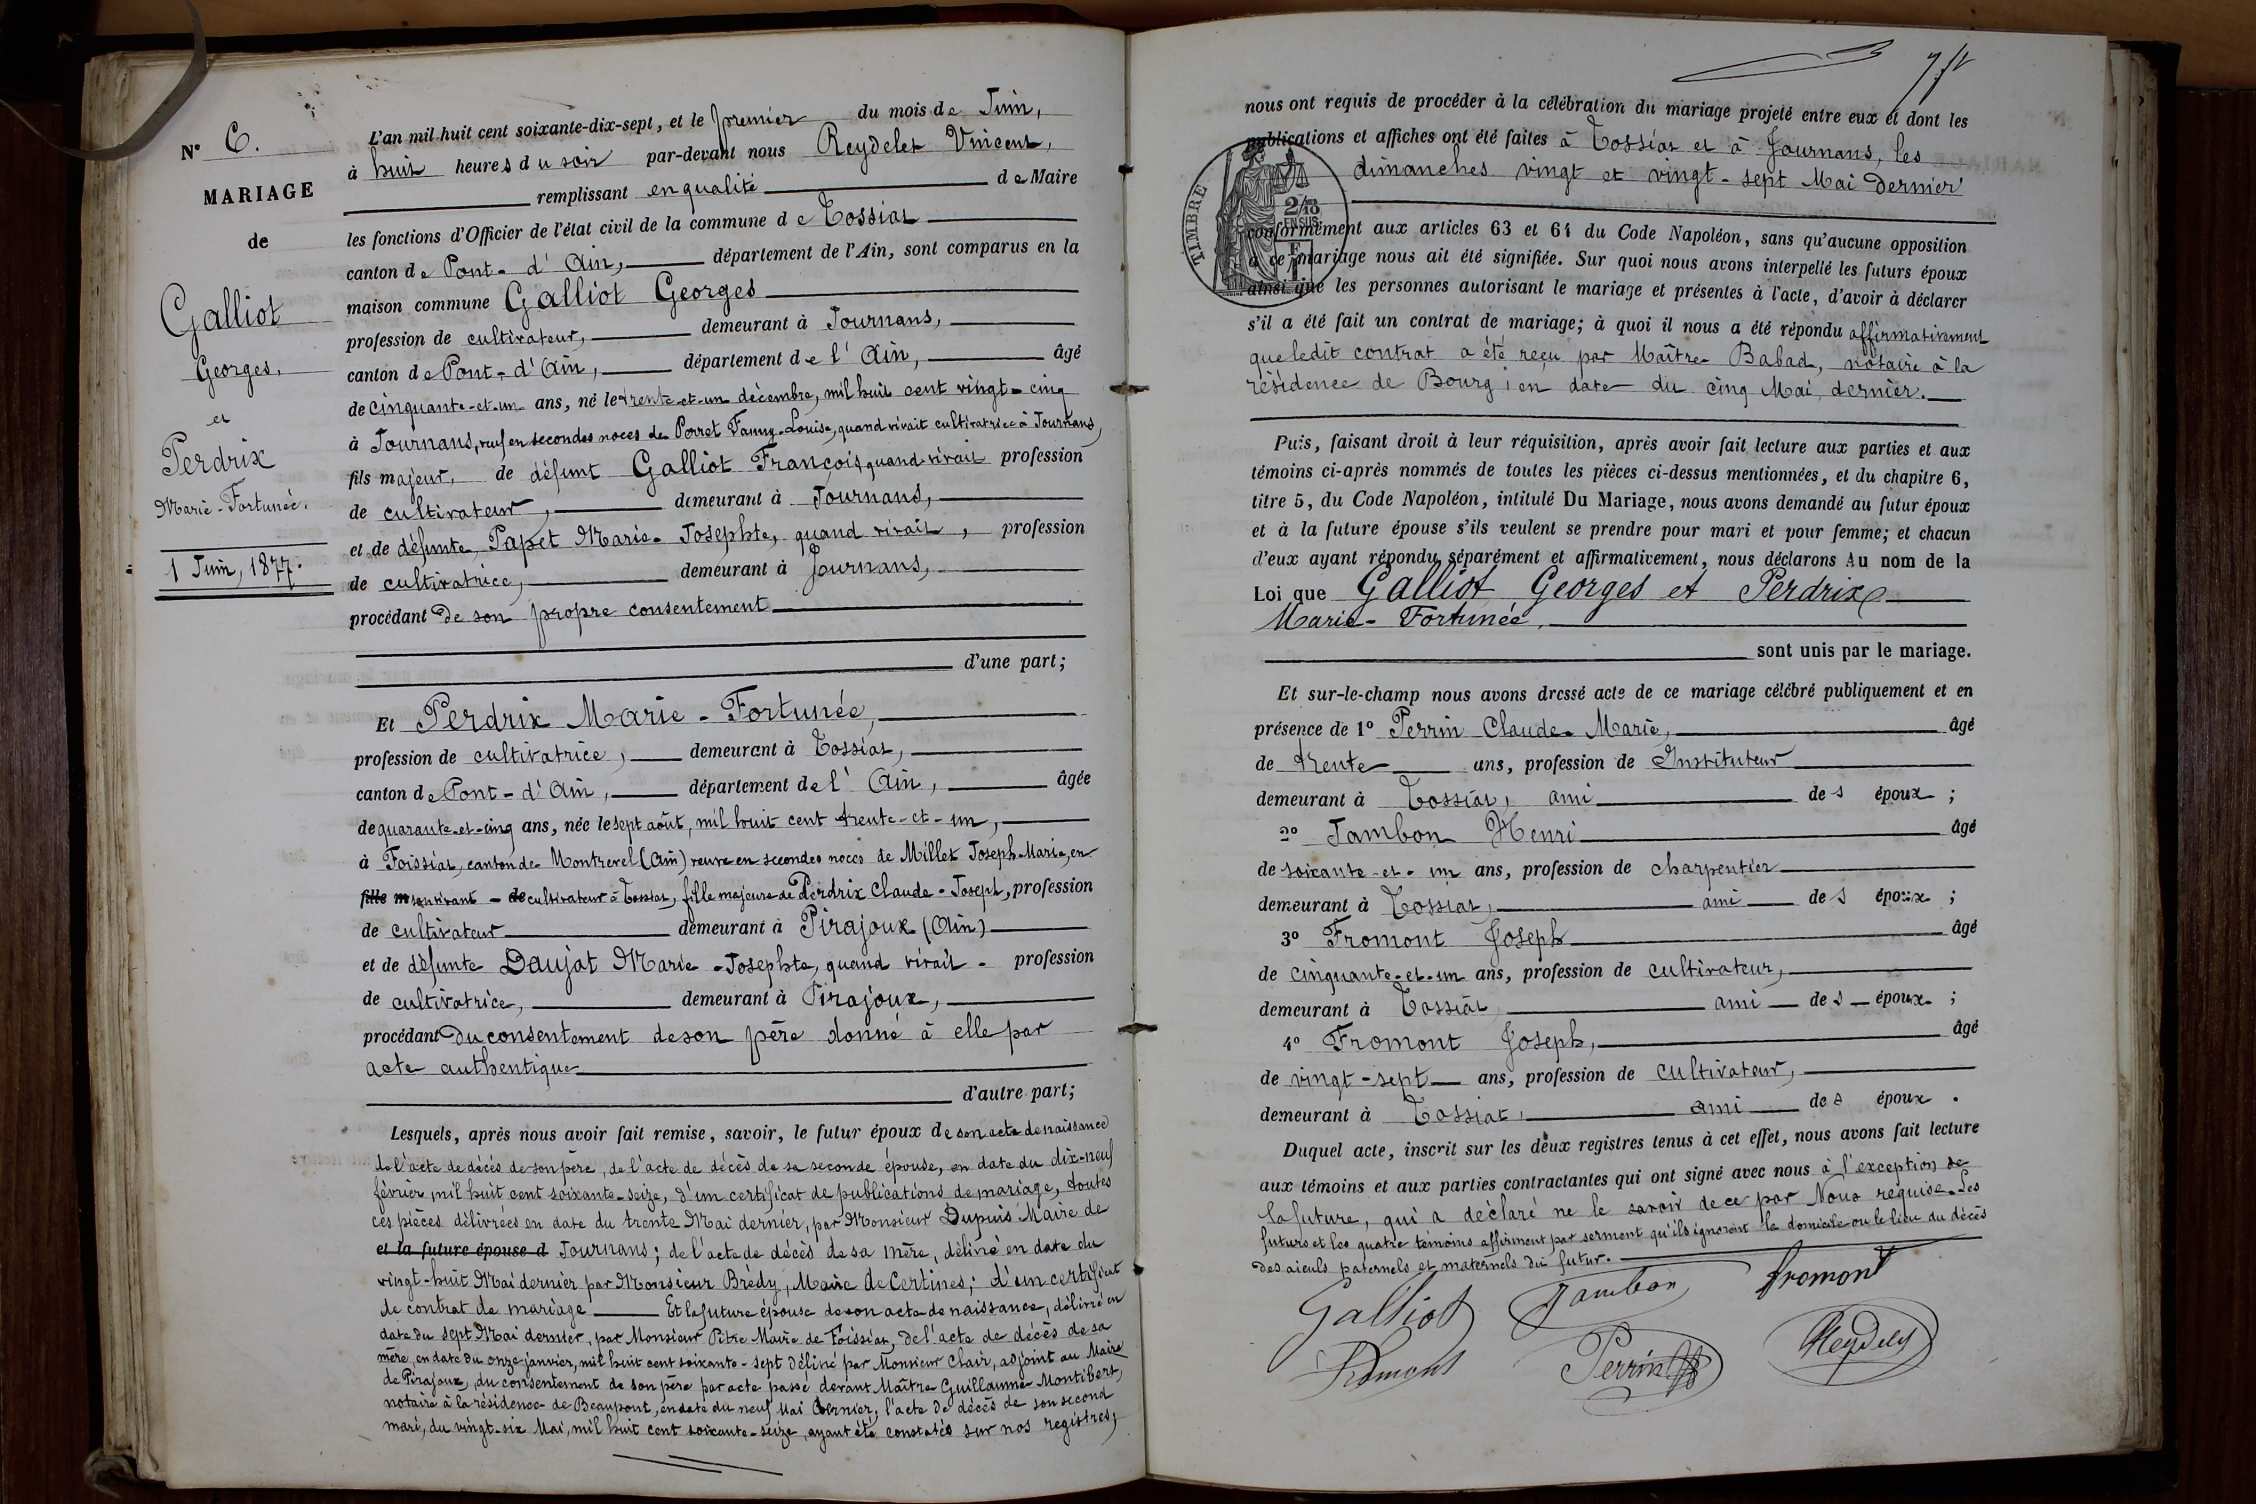 N° 6.
MARIAGE
de
Galliot
Georges,
et
Perdrix
Marie-Fortunée.
1 Juin, 1877.
L'an mil huit cent soixante-dix-sept, et le premier du mois de Juin,
à huit heures du soir par-devant nous Reydelet Vincent,
remplissant en qualité de Maire
les fonctions d'Officier de l'état civil de la commune de Tossiat
canton de Pont-d'Ain, département de l'Ain, sont comparus en la
maison commune Galliot Georges
profession de cultivateur, demeurant à Journans,
canton de Pont-d'Ain, département de l'Ain, âgé
de cinquante-et-un ans, né le trente-et-un décembre, mil huit cent vingt-cinq
à Journans, veuf en secondes noces de Porret Fanny-Louise, quand vivait cultivatrice à Journans,
fils majeur, de défunt Galliot François, quand vivait profession
de cultivateur, demeurant à Journans,
et de défunte Papet Marie-Josephte, quand vivait, profession
de cultivatrice, demeurant à Journans,
procédant de son propre consentement
d'une part;
Et Perdrix Marie-Fortunée,
profession de cultivatrice, demeurant à Tossiat,
canton de Pont-d'Ain, département de l'Ain, âgée
de quarante-et-cinq ans, née le sept août, mil huit cent trente-et-un,
à Foissiat, canton de Montrevel (Ain) veuve en secondes noces de Millet Joseph-Marie, en
fille m son vivant - de cultivateur à Tossiat, fille majeure de Perdrix Claude-Joseph, profession
de cultivateur demeurant à Pirajoux (Ain)
et de défunte Daujat Marie-Josephte, quand vivait - profession
de cultivatrice, demeurant à Pirajoux,
procédant du consentement de son père donné à elle par
acte authentique
d'autre part;
Lesquels, après nous avoir fait remise, savoir, le futur époux de son acte de naissance
de l'acte de décés de son père, de l'acte de décès de sa seconde épouse, en date du dix-neuf
février, mil huit cent soixante-seize, d'un certificat de publications de mariage, toutes
ces pièces délivrées en date du trente Mai dernier, par Monsieur Dupuis Maire de
et la future épouse d Journans; de l'acte de décès de sa mère, délivré en date du
vingt-huit Mai dernier par Monsieur Brédy, Maire de Certines; d'un certificat
de contrat de mariage Et la future épouse de son acte de naissance, délivré en
date du sept Mai dernier, par Monsieur Pitre Maire de Foissiat, de l'acte de décès de sa
mère, en date du onze janvier, mil huit cent soixante-sept délivré par Monsieur Clair, adjoint au Maire
de Pirajoux, du consentement de son père par acte passé devant Maître Guillaume Montibert,
notaire à la résidence de Beaupont, en date du neuf Mai dernier, l'acte de décès de son second
mari, du vingt-six Mai, mil huit cent soixante-seize, ayant été constatés sur nos registres;
nous ont requis de procéder à la célébration du mariage projeté entre eux et dont les
publications et affiches ont été faites à Tossiat et à Journans, les
dimanches vingt et vingt-sept Mai dernier
TIMBRE
2/10
EN SUS
conformément aux articles 63 et 64 du Code Napoléon, sans qu'aucune opposition
à ce mariage nous ait été signifiée. Sur quoi nous avons interpellé les futurs époux
ainsi que les personnes autorisant le mariage et présentes à l'acte, d'avoir à déclarer
s'il a été fait un contrat de mariage; à quoi il nous a été répondu affirmativement
que ledit contrat a été reçu par Maître Babad, notaire à la
résidence de Bourg, en date du cinq Mai dernier.
Puis, faisant droit à leur réquisition, après avoir fait lecture aux parties et aux
témoins ci-après nommés de toutes les pièces ci-dessus mentionnées, et du chapitre 6,
titre 5, du Code Napoléon, intitulé Du Mariage, nous avons demandé au futur époux
et à la future épouse s'ils veulent se prendre pour mari et pour femme; et chacun
d'eux ayant répondu séparément et affirmativement, nous déclarons Au nom de la
Loi que Galliot Georges et Perdrix
Marie-Fortunée,
sont unis par le mariage.
Et sur-le-champ nous avons dressé acte de ce mariage célébré publiquement et en
présence de 1° Perrin Claude-Marie, âgé
de trente ans, profession de Instituteur
demeurant à Tossiat, ami des époux;
2° Jambon Henri âgé
de soixante-et-un ans, profession de charpentier
demeurant à Tossiat, ami des époux;
3° Fromont Joseph âgé
de cinquante-et-un ans, profession de cultivateur,
demeurant à Tossiat, ami des époux;
4° Fromont Joseph, âgé
de vingt-sept ans, profession de cultivateur,
demeurant à Tossiat, ami des époux.
Duquel acte, inscrit sur les deux registres tenus à cet effet, nous avons fait lecture
aux témoins et aux parties contractantes qui ont signé avec nous à l'exception de
la future, qui a déclaré ne le savoir de ce par Nous requise. Les
futurs et les quatre témoins affirment par serment qu'ils ignorent le domicile ou le lieu du décès
des aïeuls paternels et maternels du futur.
Galliot Jambon Fromont
Fromont Perrin Reydelet